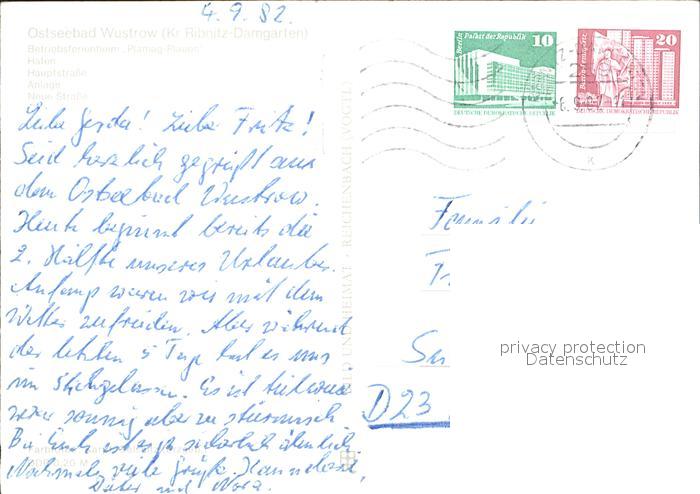 4.9.82.
Ostseebad Wustrow (Kr Ribnitz-Damgarten)
Betriebsferienheim „Plamag-Plauen"
Hafen
Hauptstraße
Anlage
Neue Straße
Liebe Gerda! Liebe Fritz!
Seid herzlich gegrüßt aus
dem Ostseebad Wustrow.
Heute beginnt bereits die
2. Hälfte unseres Urlaubes.
Anfangs waren wir mit dem
Wetter zufrieden. Aber während
der letzten 5 Tage hat es uns
im Stich gelassen. Es ist teilweise
zwar sonnig aber zu stürmisch
Bei Euch ist es ja sicherlich ähnlich
Nochmals viele Grüße. Hannelore,
Dieter und Nora.
BILD UND HEIMAT · REICHENBACH (VOGTL)
Berlin Palast der Republik 10
DEUTSCHE DEMOKRATISCHE REPUBLIK
20
DEUTSCHE DEMOKRATISCHE REPUBLIK
Familie
D 23
privacy protection
Datenschutz